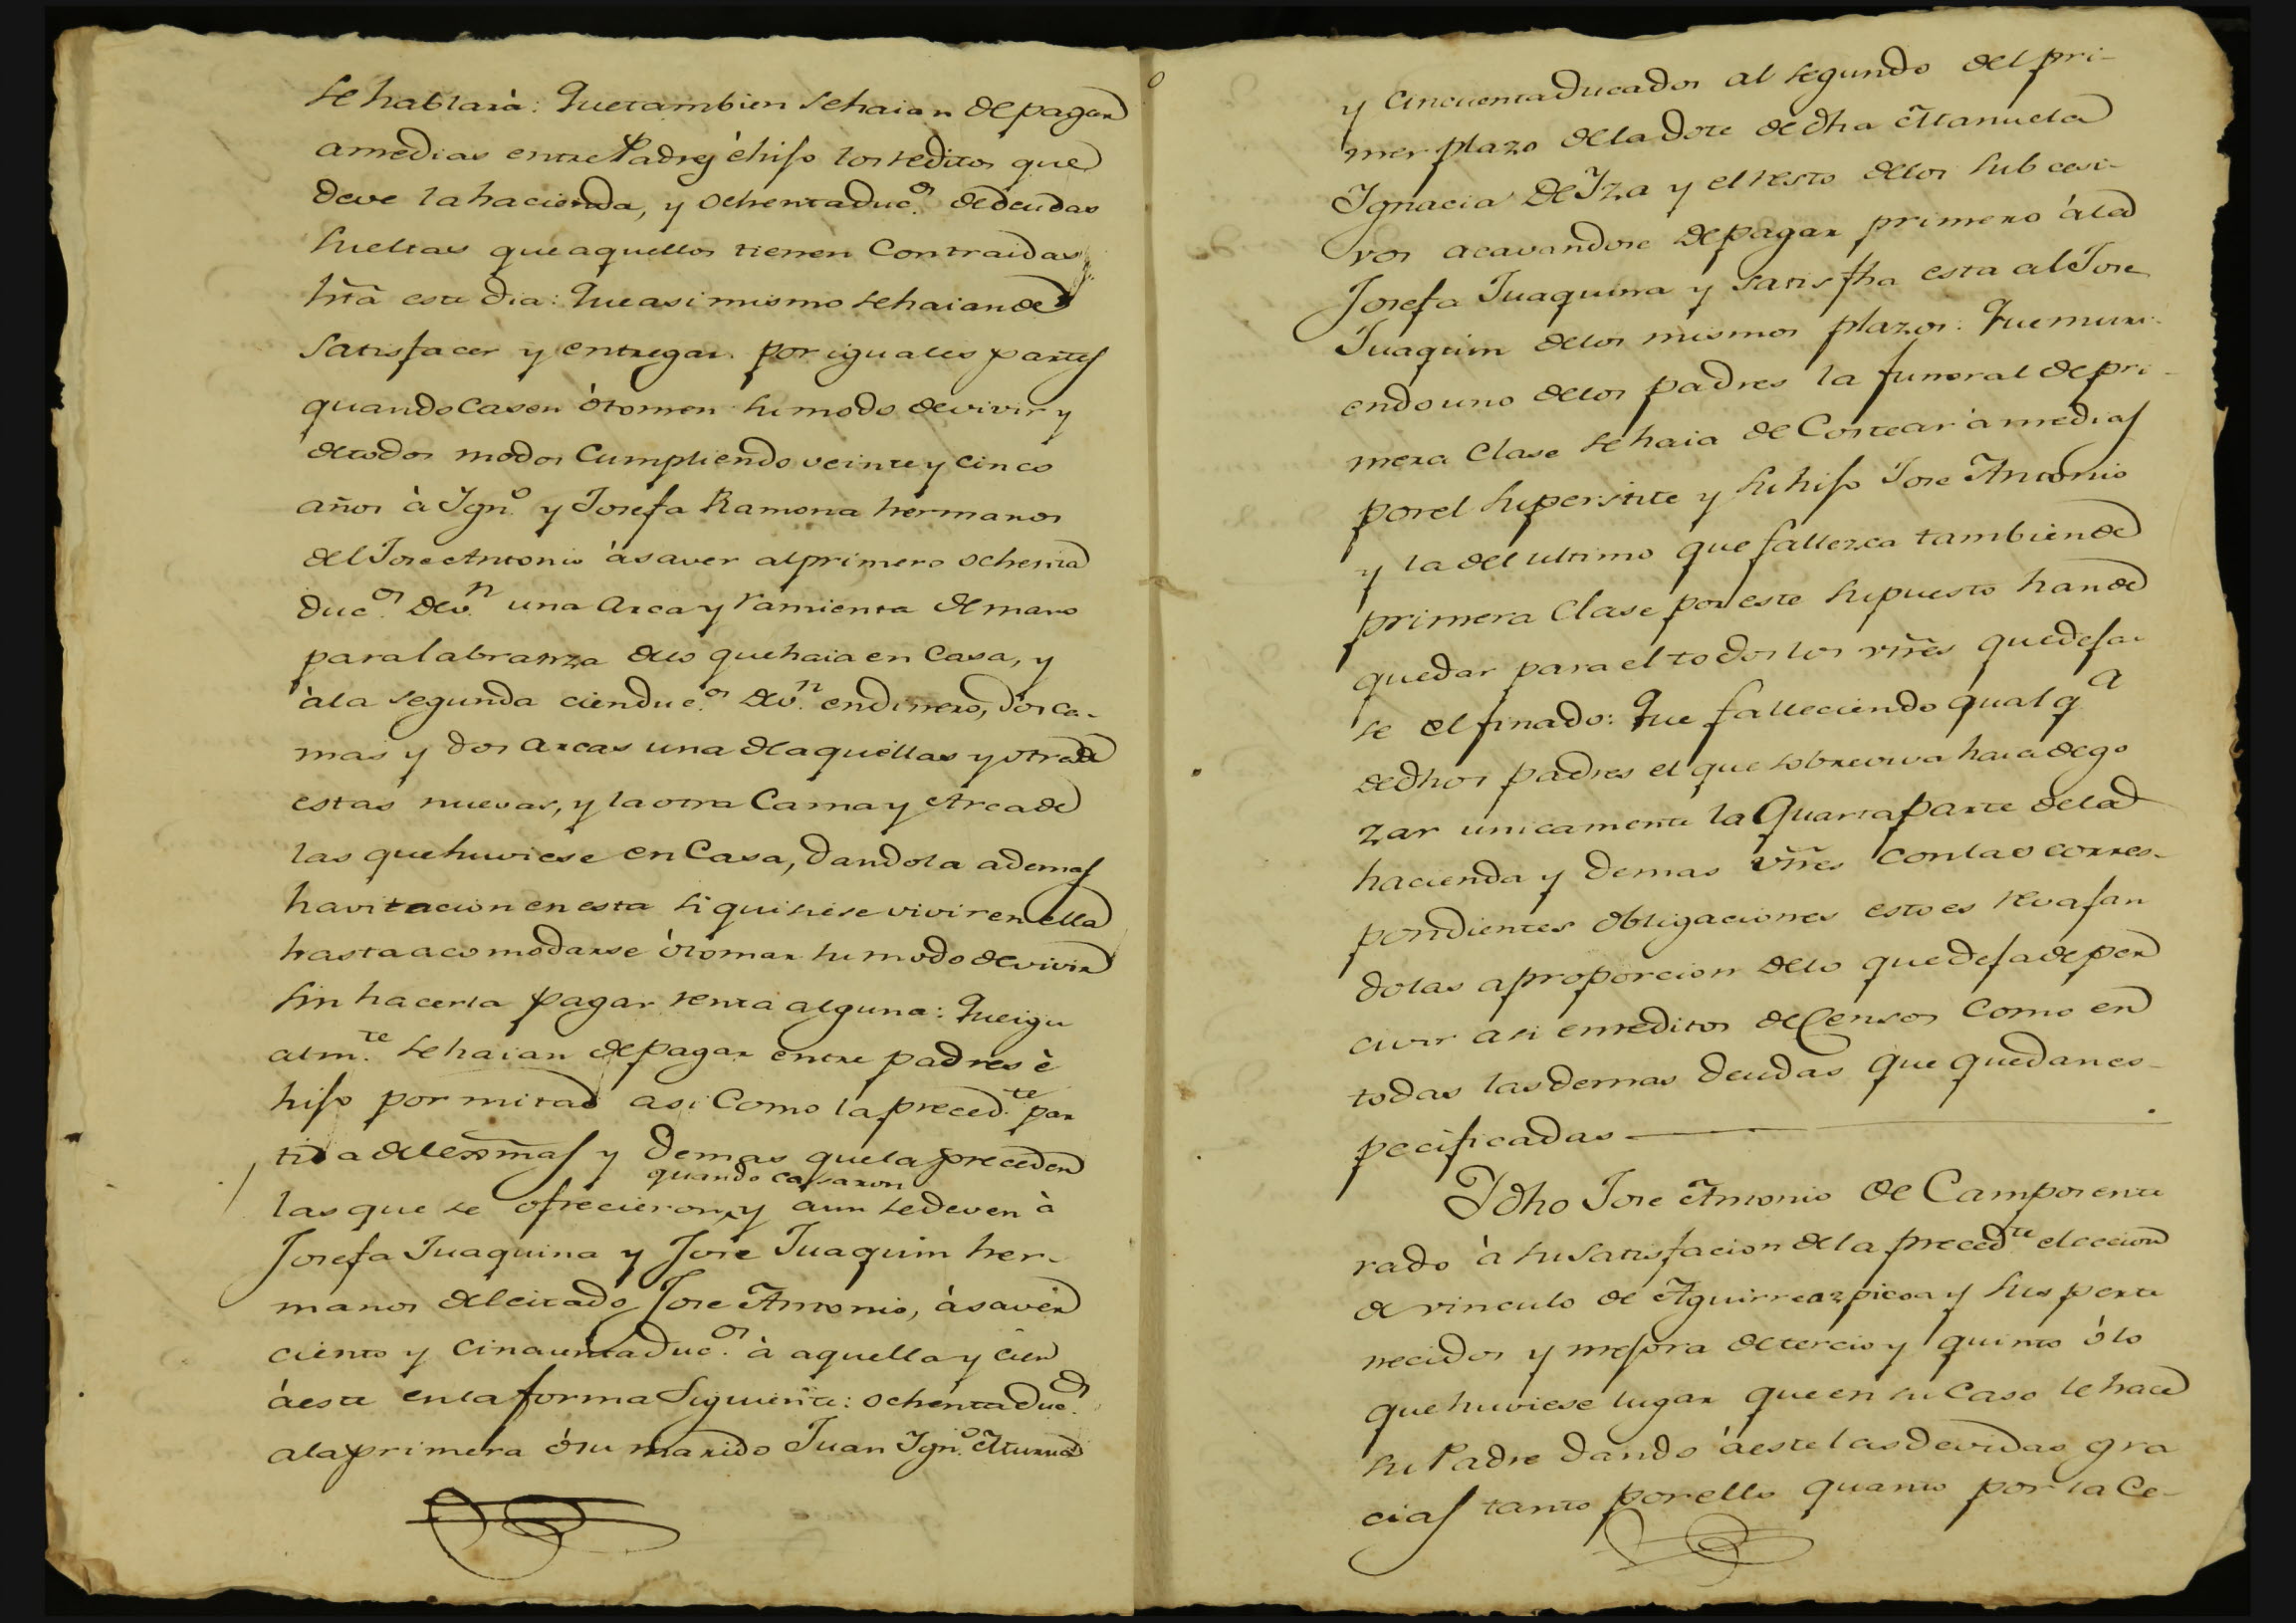 se hablará: Que tambien se haian de pagar
a medias entre Padres é hijo los reditos que
deve la hacienda, y ochenta duc.os de deudas
sueltas que aquellos tienen contraidas
hta este dia: Que asi mismo se haian de
satisfacer y entregar por iguales partes
quando casen ó tomen su modo de vivir y
de todos modos cumpliendo veinte y cinco
años à Ign.o y Josefa Ramona hermanos
del Jose Antonio à saver al primero ochenta
duc.os de v.n una arca y ramienta de mano
para labranza de lo que haia en casa, y
à la segunda cien duc.os de v.n en dinero, dos ca-
mas y dos arcas una de aquellas y otra de
estas nuevas, y la otra Cama y Arca de
las que huviese en Casa, dandola ademas
havitacion en esta si quisiese vivir en ella
hasta acomodarse ó tomar su modo de vivir
sin hacerla pagar renta alguna: Que igu
alm.te se haian de pagar entre padres è
hijo por mitad asi como la preced.te par
tida de lexmas y demas que la preceden
quando casaron
las que se ofrecieron y aun se deven à
Josefa Juaquina y Jose Juaquin her-
manos del citado Jose Antonio, à saver
ciento y cinquenta duc.os à aquella y cien
à este en la forma siguiente: ochenta duc.os
a la primera ó su marido Juan Ign.o
y cincuenta ducados al segundo del pri-
mer plazo de la dote de dha Manuela
Ignacia de Iza y el resto de los subcesi-
vos acavandose de pagar primero à la
Josefa Juaquina y satisfha esta al Jose
Juaquin de los mismos plazos: Que muri-
endo uno de los padres la funeral de pri-
mera clase se haia de costear à medias
por el superstite y su hijo Jose Antonio
y la del ultimo que fallezca tambien de
primera clase por este supuesto han de
quedar para él todos los vns que deja-
se el finado: Que falleciendo qualqa
de dhos padres el que sobreviva haia de go
zar unicamente la Quarta parte de la
hacienda y demas vns con las corres-
pondientes obligaciones esto es revajan
dolas a proporcion de lo que deja de per
civir asi en reditos de Censos como en
todas las demas deudas que quedan es-
pecificadas
Y dho Jose Antonio de Campos ente
rado à su satisfacion de la preced.te eleccion
de vinculo de Aguirreazpicoa y sus perte
necidos y mejora de tercio y quinto ó lo
que huviese lugar que en su caso le hace
su Padre dando à este las devidas gra
cias tanto por ello quanto por la Ce-